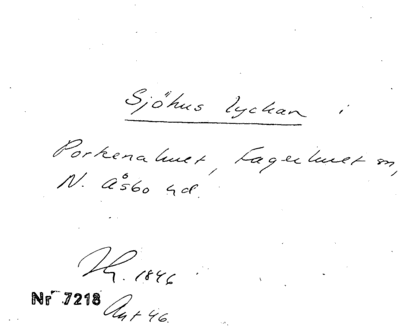 Sjöhus lyckan i
Porkenahult, Fagerhult sn,
N. Åsbo hd.
1846
Nr 7218
Ant 46.